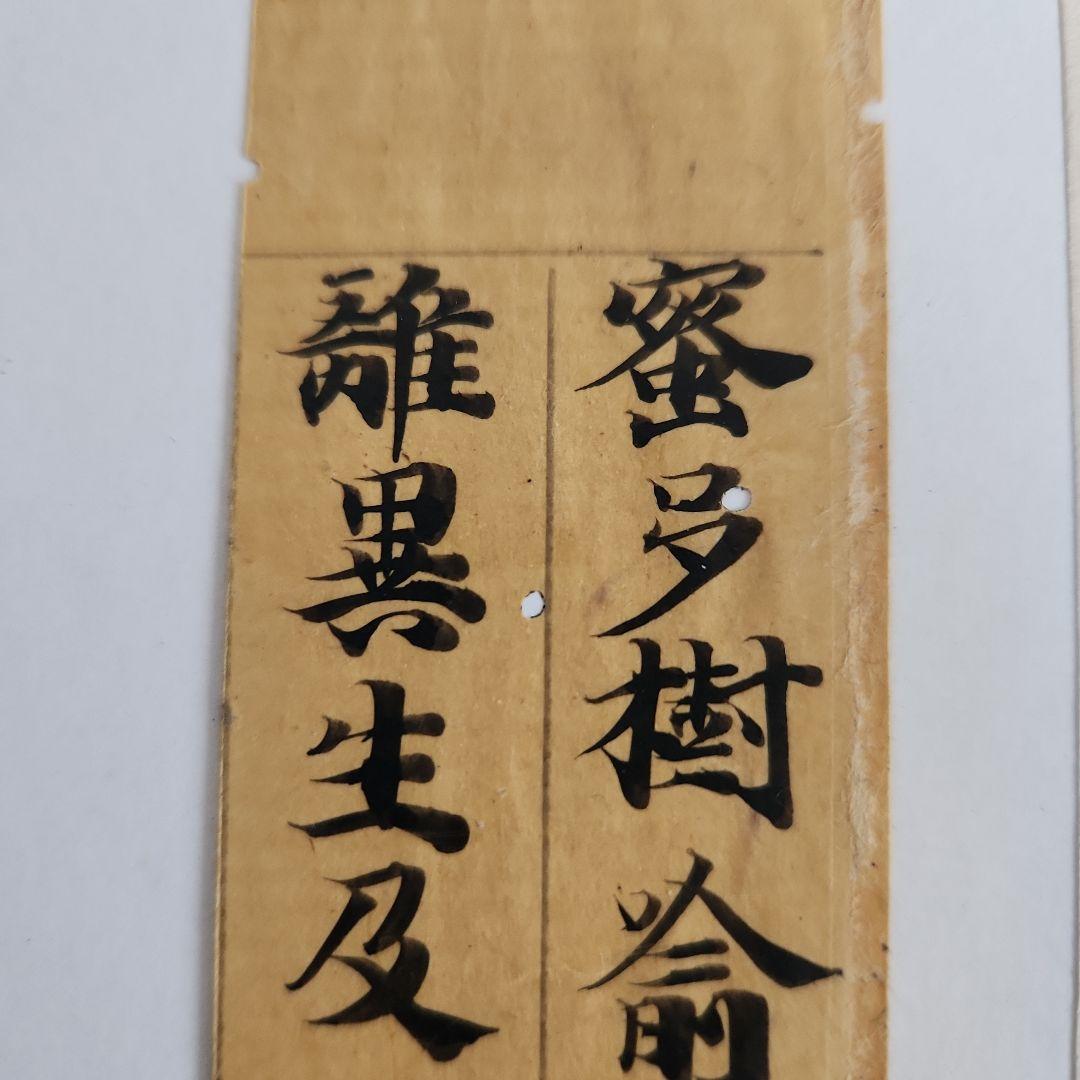 蜜多樹喻
離異生及